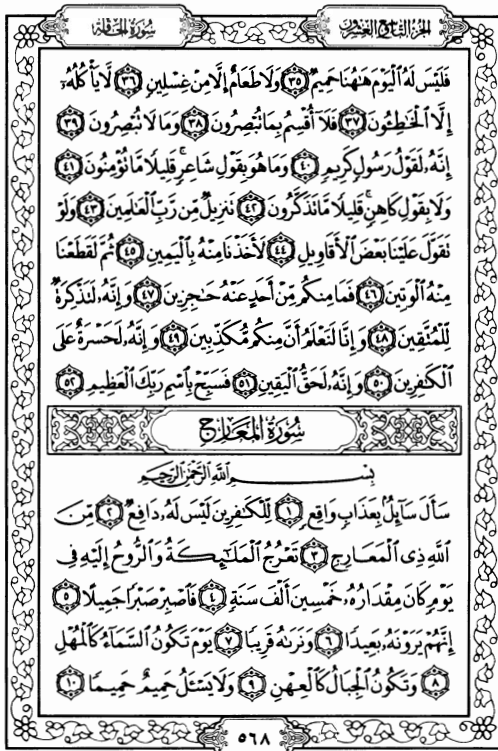 سُورَةُ الحَاقَّة
الجُزءُ التَّاسِعُ وَالعِشرُونَ
فَلَيْسَ لَهُ الْيَوْمَ هَاهُنَا حَمِيمٌ ٣٥ وَلَا طَعَامٌ إِلَّا مِنْ غِسْلِينٍ ٣٦ لَّا يَأْكُلُهُۥٓ
إِلَّا الْخَٰطِـُٔونَ ٣٧ فَلَآ أُقْسِمُ بِمَا تُبْصِرُونَ ٣٨ وَمَا لَا تُبْصِرُونَ ٣٩
إِنَّهُۥ لَقَوْلُ رَسُولٍ كَرِيمٍ ٤٠ وَمَا هُوَ بِقَوْلِ شَاعِرٍ ۚ قَلِيلًا مَّا تُؤْمِنُونَ ٤١
وَلَا بِقَوْلِ كَاهِنٍ ۚ قَلِيلًا مَّا تَذَكَّرُونَ ٤٢ تَنزِيلٌ مِّن رَّبِّ الْعَالَمِينَ ٤٣ وَلَوْ
تَقَوَّلَ عَلَيْنَا بَعْضَ الْأَقَاوِيلِ ٤٤ لَأَخَذْنَا مِنْهُ بِالْيَمِينِ ٤٥ ثُمَّ لَقَطَعْنَا
مِنْهُ الْوَتِينَ ٤٦ فَمَا مِنكُم مِّنْ أَحَدٍ عَنْهُ حَاجِزِينَ ٤٧ وَإِنَّهُۥ لَتَذْكِرَةٌ
لِّلْمُتَّقِينَ ٤٨ وَإِنَّا لَنَعْلَمُ أَنَّ مِنكُم مُّكَذِّبِينَ ٤٩ وَإِنَّهُۥ لَحَسْرَةٌ عَلَى
الْكَٰفِرِينَ ٥٠ وَإِنَّهُۥ لَحَقُّ الْيَقِينِ ٥١ فَسَبِّحْ بِاسْمِ رَبِّكَ الْعَظِيمِ ٥٢
سُورَةُ المَعَارِجِ
بِسْمِ اللَّهِ الرَّحْمَٰنِ الرَّحِيمِ
سَأَلَ سَآئِلٌۢ بِعَذَابٍ وَاقِعٍ ١ لِّلْكَٰفِرِينَ لَيْسَ لَهُۥ دَافِعٌ ٢ مِّنَ
اللَّهِ ذِي الْمَعَارِجِ ٣ تَعْرُجُ الْمَلَٰٓئِكَةُ وَالرُّوحُ إِلَيْهِ فِي
يَوْمٍ كَانَ مِقْدَارُهُۥ خَمْسِينَ أَلْفَ سَنَةٍ ٤ فَاصْبِرْ صَبْرًا جَمِيلًا ٥
إِنَّهُمْ يَرَوْنَهُۥ بَعِيدًا ٦ وَنَرَىٰهُ قَرِيبًا ٧ يَوْمَ تَكُونُ السَّمَآءُ كَالْمُهْلِ
٨ وَتَكُونُ الْجِبَالُ كَالْعِهْنِ ٩ وَلَا يَسْـَٔلُ حَمِيمٌ حَمِيمًا ١٠
٥٦٨